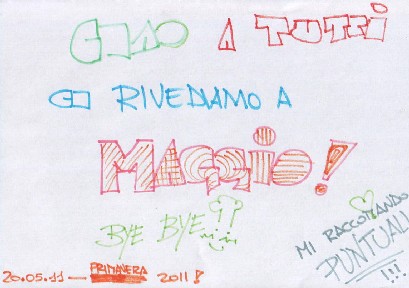 CIAO A TUTTI
CI RIVEDIAMO A
MAGGIO!
BYE BYE
MI RACCOMANDO
PUNTUALI
!!!
20.05.11 — PRIMAVERA 2011!